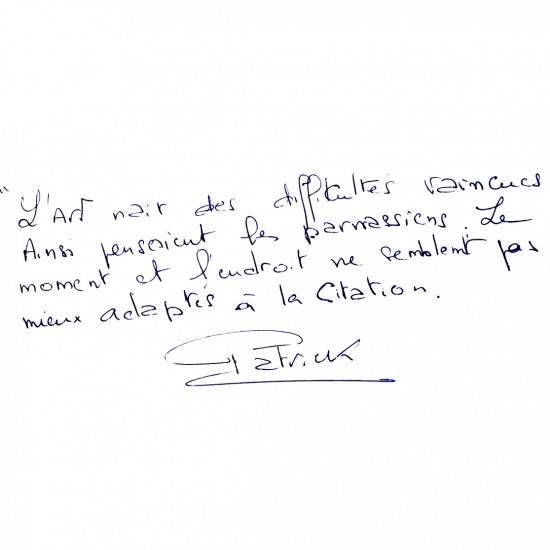 " L'Art nait des difficultés vaincues
Ainsi pensaient les parnassiens. Le
moment et l'endroit ne semblent pas
mieux adaptés à la Citation.
Patrick